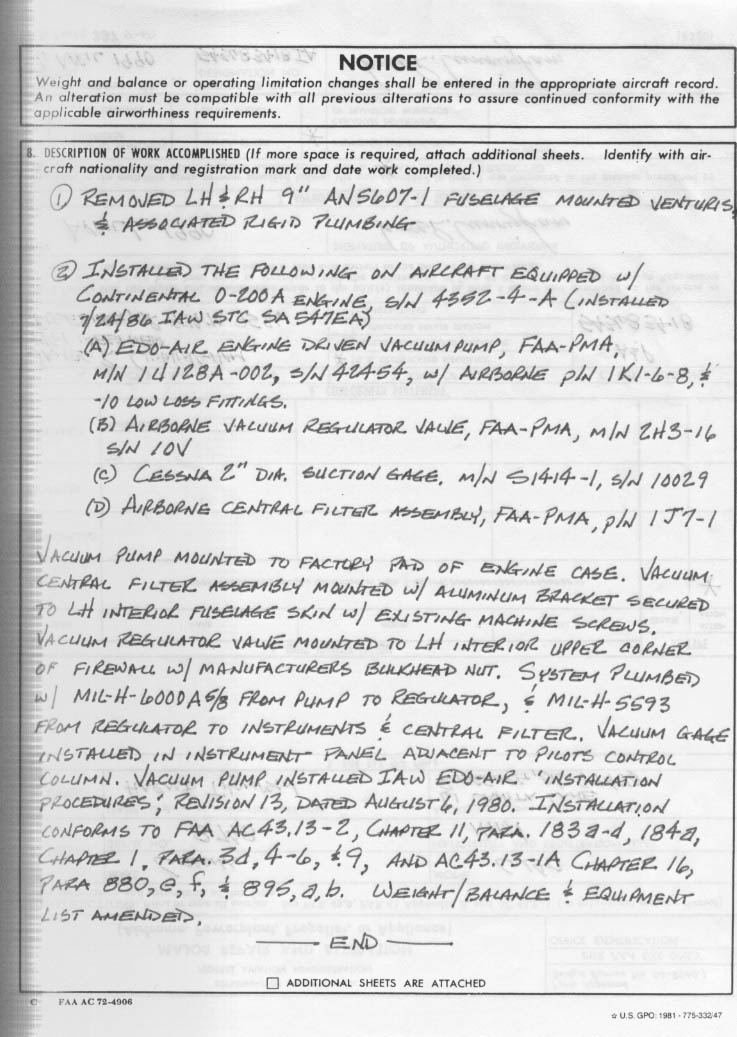 NOTICE
Weight and balance or operating limitation changes shall be entered in the appropriate aircraft record.
An alteration must be compatible with all previous alterations to assure continued conformity with the
applicable airworthiness requirements.
8. DESCRIPTION OF WORK ACCOMPLISHED (If more space is required, attach additional sheets. Identify with air-
craft nationality and registration mark and date work completed.)
① REMOVED LH & RH 9" AN5607-1 FUSELAGE MOUNTED VENTURIS,
& ASSOCIATED RIGID PLUMBING
② INSTALLED THE FOLLOWING ON AIRCRAFT EQUIPPED W/
CONTINENTAL O-200A ENGINE, S/N 4352-4-A (INSTALLED
7/24/86 IAW STC SA547EA)
(A) EDO-AIR ENGINE DRIVEN VACUUM PUMP, FAA-PMA,
M/N 1U128A-002, S/N 42454, W/ AIRBORNE P/N 1K1-6-8, &
-10 LOW LOSS FITTINGS.
(B) AIRBORNE VACUUM REGULATOR VALVE, FAA-PMA, M/N 2H3-16
S/N 10V
(C) CESSNA 2" DIA. SUCTION GAGE, M/N S1414-1, S/N 10029
(D) AIRBORNE CENTRAL FILTER ASSEMBLY, FAA-PMA, P/N 1J7-1
VACUUM PUMP MOUNTED TO FACTORY PAD OF ENGINE CASE. VACUUM
CENTRAL FILTER ASSEMBLY MOUNTED W/ ALUMINUM BRACKET SECURED
TO LH INTERIOR FUSELAGE SKIN W/ EXISTING MACHINE SCREWS.
VACUUM REGULATOR VALVE MOUNTED TO LH INTERIOR UPPER CORNER
OF FIREWALL W/ MANUFACTURERS BULKHEAD NUT. SYSTEM PLUMBED
W/ MIL-H-6000A 5/8 FROM PUMP TO REGULATOR, & MIL-H-5593
FROM REGULATOR TO INSTRUMENTS & CENTRAL FILTER. VACUUM GAGE
INSTALLED IN INSTRUMENT PANEL ADJACENT TO PILOTS CONTROL
COLUMN. VACUUM PUMP INSTALLED IAW EDO-AIR "INSTALLATION
PROCEDURES", REVISION 13, DATED AUGUST 6, 1980. INSTALLATION
CONFORMS TO FAA AC43.13-2, CHAPTER 11, PARA. 183a-d, 184a,
CHAPTER 1, PARA. 3d, 4-6, & 9, AND AC43.13-1A CHAPTER 16,
PARA 880, e, f, & 895, a, b. WEIGHT/BALANCE & EQUIPMENT
LIST AMENDED.
END
ADDITIONAL SHEETS ARE ATTACHED
C FAA AC 72-4906
☆ U.S. GPO: 1981 - 775-332/47